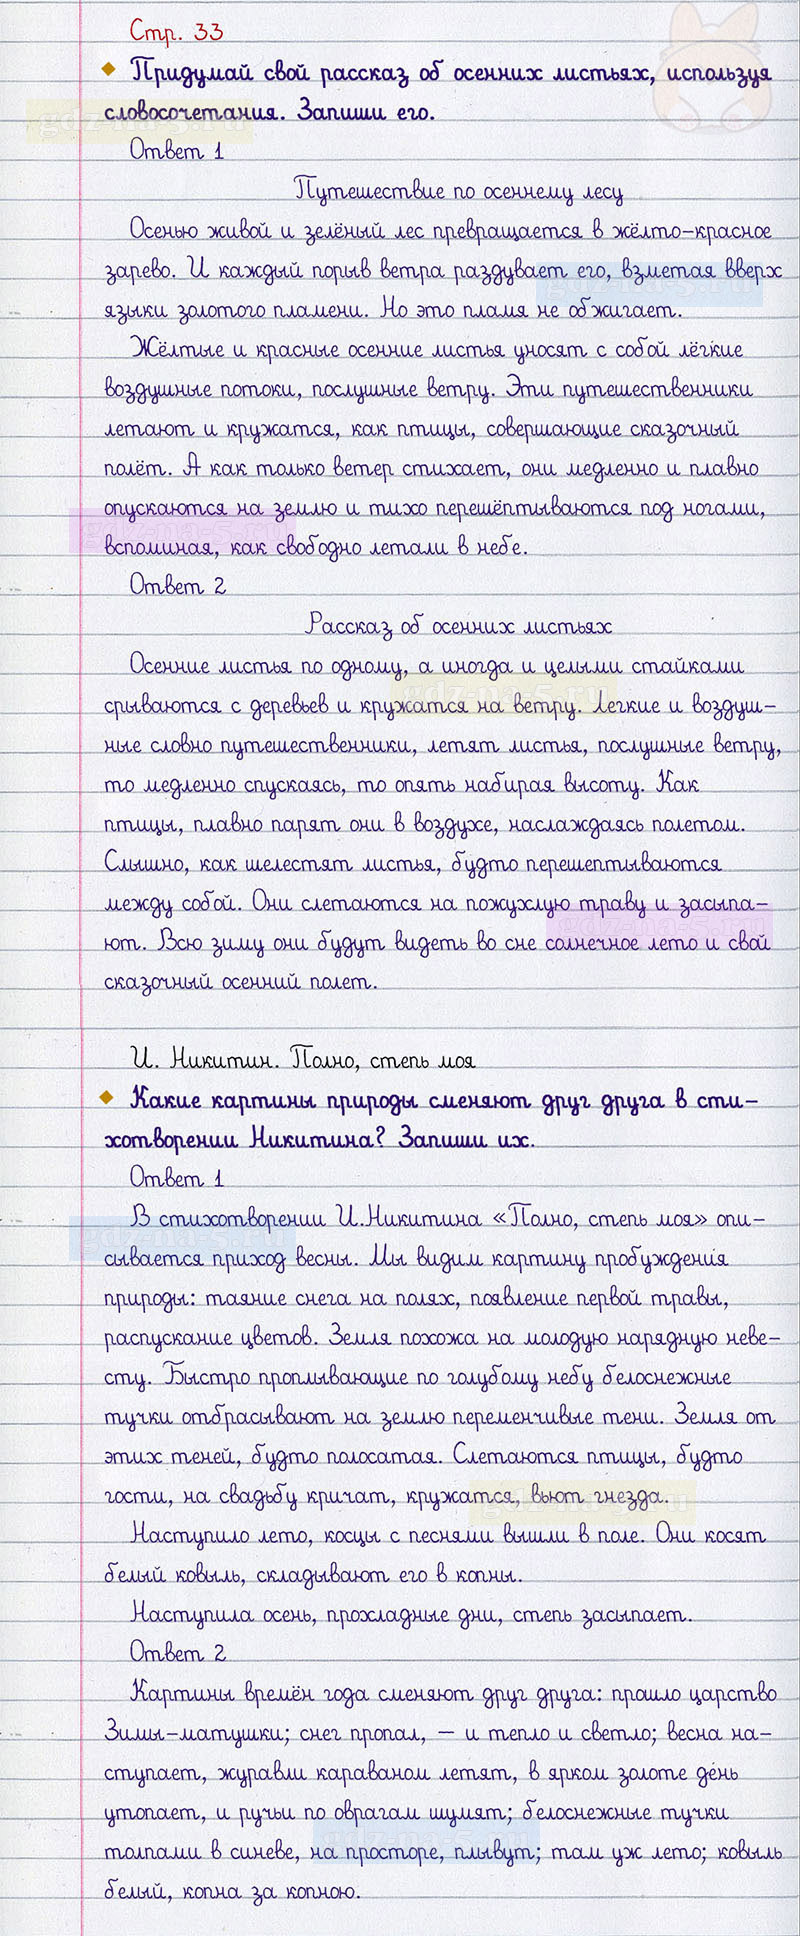 Стр. 33
Придумай свой рассказ об осенних листьях, используя
словосочетания. Запиши его.
Ответ 1
Путешествие по осеннему лесу
Осенью живой и зелёный лес превращается в жёлто-красное
зарево. И каждый порыв ветра раздувает его, взметая вверх
языки золотого пламени. Но это пламя не обжигает.
Жёлтые и красные осенние листья уносят с собой лёгкие
воздушные потоки, послушные ветру. Эти путешественники
летают и кружатся, как птицы, совершающие сказочный
полёт. А как только ветер стихает, они медленно и плавно
опускаются на землю и тихо перешёптываются под ногами,
вспоминая, как свободно летали в небе.
Ответ 2
Рассказ об осенних листьях
Осенние листья по одному, а иногда и целыми стайками
срываются с деревьев и кружатся на ветру. Легкие и воздуш-
ные словно путешественники, летят листья, послушные ветру,
то медленно спускаясь, то опять набирая высоту. Как
птицы, плавно парят они в воздухе, наслаждаясь полетом.
Слышно, как шелестят листья, будто перешептываются
между собой. Они слетаются на пожухлую траву и засыпа-
ют. Всю зиму они будут видеть во сне солнечное лето и свой
сказочный осенний полет.
И. Никитин. Полно, степь моя
Какие картины природы сменяют друг друга в сти-
хотворении Никитина? Запиши их.
Ответ 1
В стихотворении И.Никитина «Полно, степь моя» опи-
сывается приход весны. Мы видим картину пробуждения
природы: таяние снега на полях, появление первой травы,
распускание цветов. Земля похожа на молодую нарядную неве-
сту. Быстро проплывающие по голубому небу белоснежные
тучки отбрасывают на землю переменчивые тени. Земля от
этих теней, будто полосатая. Слетаются птицы, будто
гости, на свадьбу кричат, кружатся, вьют гнезда.
Наступило лето, косцы с песнями вышли в поле. Они косят
белый ковыль, складывают его в копны.
Наступила осень, прохладные дни, степь засыпает.
Ответ 2
Картины времён года сменяют друг друга: прошло царство
Зимы-матушки; снег пропал, — и тепло и светло; весна на-
ступает, журавли караваном летят, в ярком золоте день
утопает, и ручьи по оврагам шумят; белоснежные тучки
толпами в синеве, на просторе, плывут; там уж лето; ковыль
белый, копна за копною.
gdz-na-5.ru
gdz-na-5.ru
gdz-na-5.ru
gdz-na-5.ru
gdz-na-5.ru
gdz-na-5.ru
gdz-na-5.ru
gdz-na-5.ru